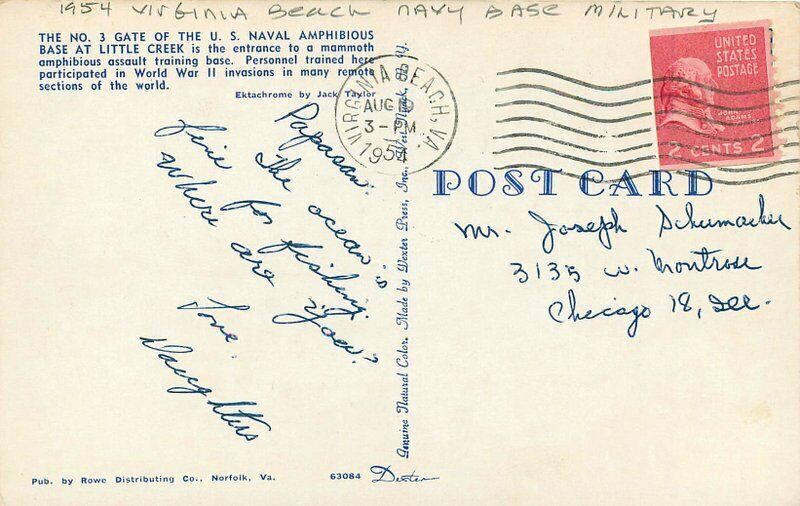 1954 VIRGINIA BEACH NAVY BASE MILITARY
THE NO. 3 GATE OF THE U. S. NAVAL AMPHIBIOUS
BASE AT LITTLE CREEK is the entrance to a mammoth
amphibious assault training base. Personnel trained here
participated in World War II invasions in many remote
sections of the world.
Ektachrome by Jack Taylor
Papasan:
The ocean is
fine for fishing.
Where are you?
Love,
Daughters
Pub. by Rowe Distributing Co., Norfolk, Va.
63084
Dexter
Genuine Natural Color. Made by Dexter Press, Inc., West Nyack, N. Y.
VIRGINIA BEACH, VA.
AUG
3 - PM
1954
UNITED
STATES
POSTAGE
JOHN
ADAMS
2 CENTS 2
POST CARD
Mr. Joseph Schumacher
3135 W. Montrose
Chicago 18, Ill.